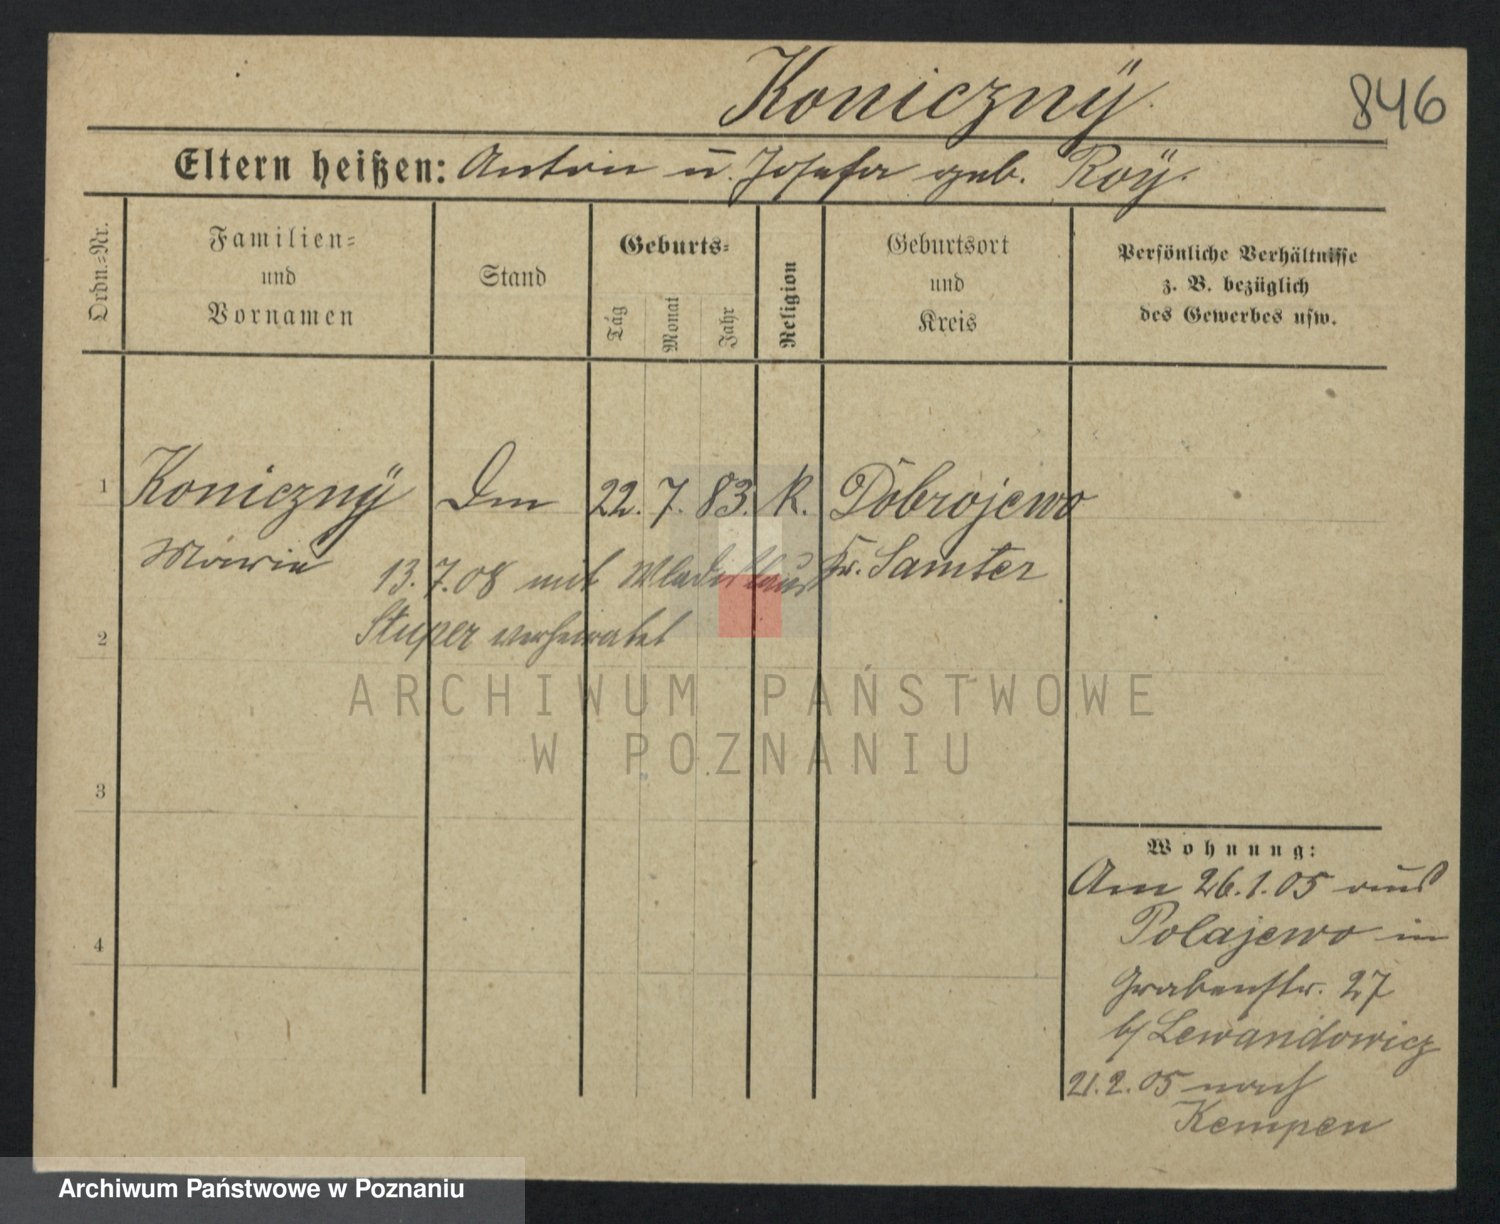 Konicznÿ
846
Eltern heißen: Anton u. Josefa geb. Roÿ.
Ordn.-Nr.
Familien-
und
Vornamen
Stand
Geburts-
Tag
Monat
Jahr
Religion
Geburtsort
und
Kreis
Persönliche Verhältnisse
z. B. bezüglich
des Gewerbes usw.
1 Konicznÿ Dm 22. 7. 83. K. Dobrojewo
Marie Kr. Samter
13.7.08 mit Wladislaus
2 Stuper verheiratet
ARCHIWUM PAŃSTWOWE
W POZNANIU
3
4
Wohnung:
Am 26.1.05 aus
Polajewo in
Grabenstr. 27
b/ Lewandowicz
21.2.05 nach
Kempen
Archiwum Państwowe w Poznaniu